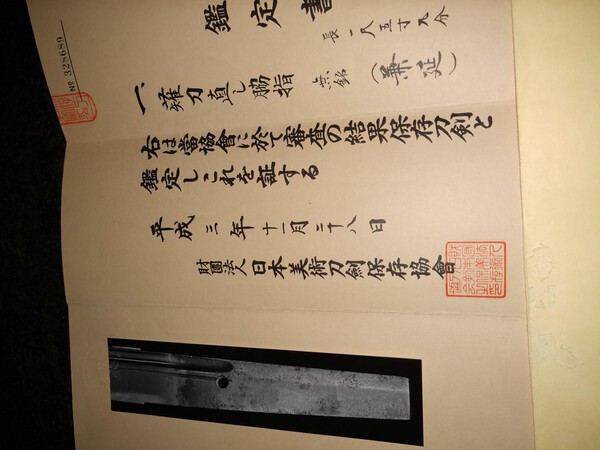 № 328689
鑑定書
長 一尺五寸八分
一、薙刀直し脇指 無銘(兼延)
右は當協會に於て審査の結果保存刀剣と
鑑定しこれを証する
平成三年十一月二十八日
財團法人 日本美術刀劍保存協會